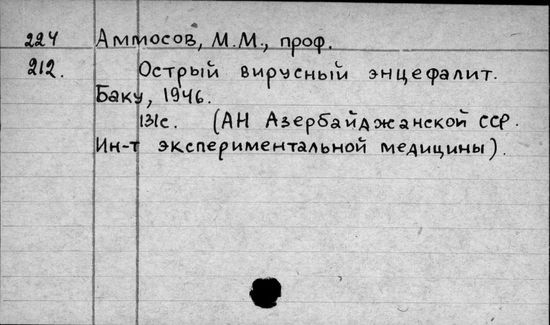 224 Аммосов, М.М., проф.
212. Острый вирусный энцефалит.
Баку, 1946.
131с. (АН Азербайджанской ССР.
Ин-т экспериментальной медицины).